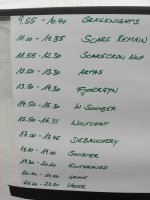 9.55 - 10.40 GRAILKNIGHTS
11.00 - 11.35 SCARS REMAIN
11.55 - 12.30 SCARECROW NWA
12.50 - 13.30 ARTAS
13.50 - 14.30 FEJNERGYN
14.50 - 15.30 W. SUMBER
15.50 - 16.35 WOLFCHANT
17.00 - 17.45 DEBAUCHERY
18.10 - 19.00 SINISTER
19.30 - 20.20 ENTHRONED
20.50 - 21.50 GRAVE
22.20 - 23.30 VADER